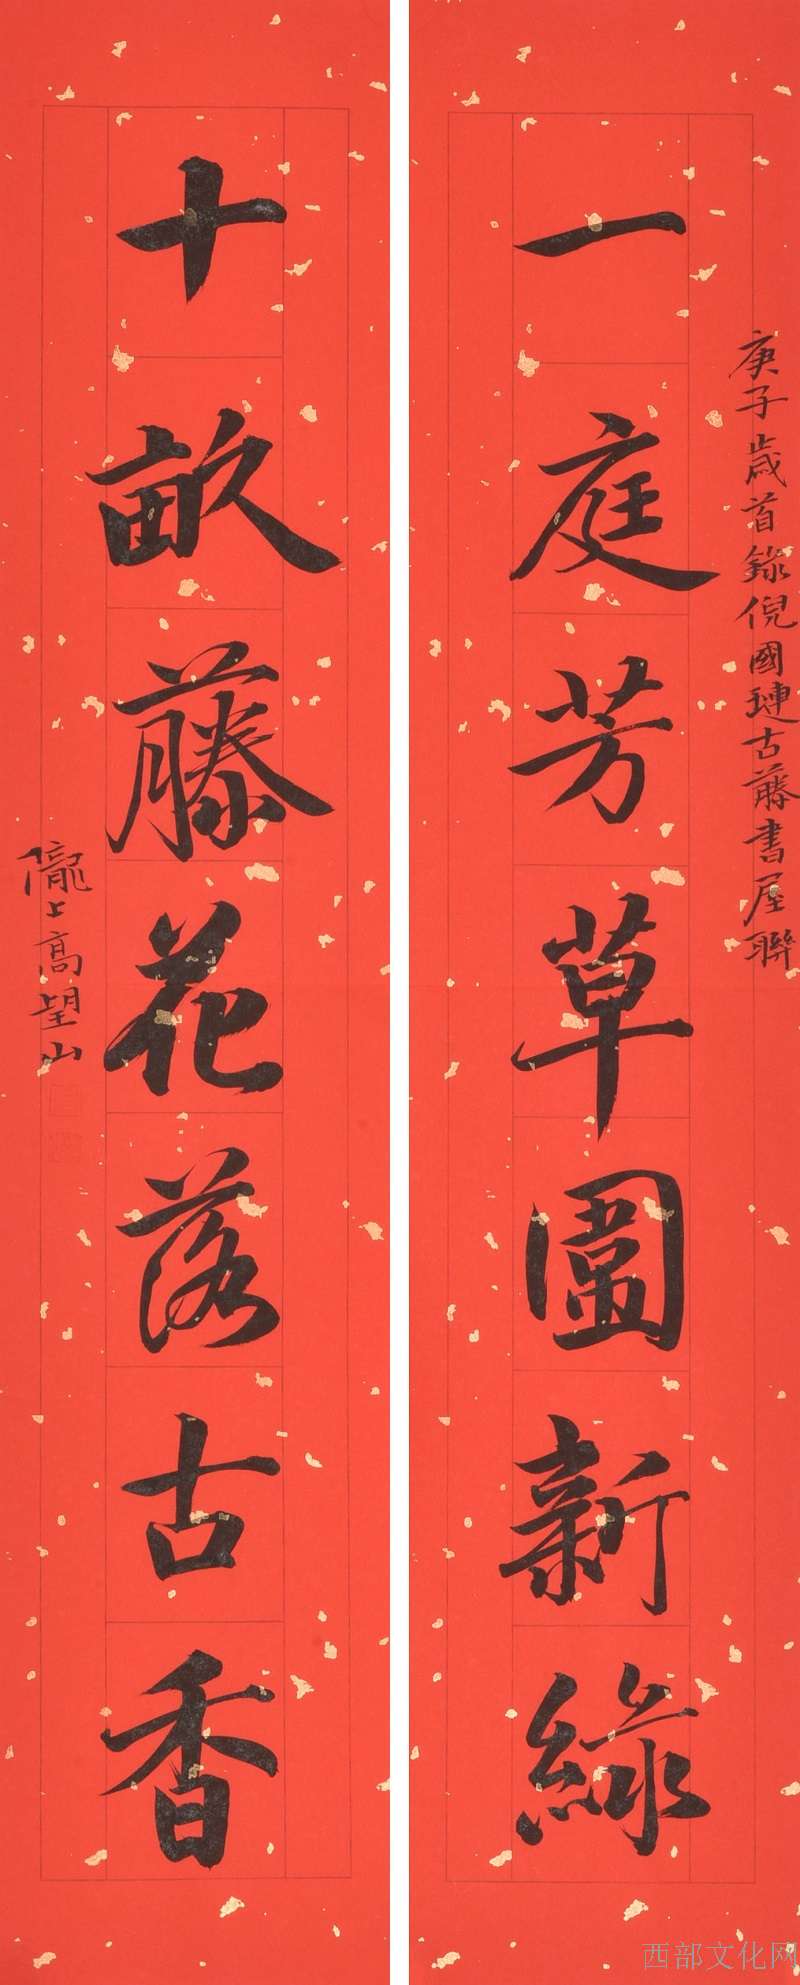 庚子歲首錄倪國璉古藤書屋聯
一庭芳草圍新綠
十畝藤花落古香
隴上高望山
西部文化网